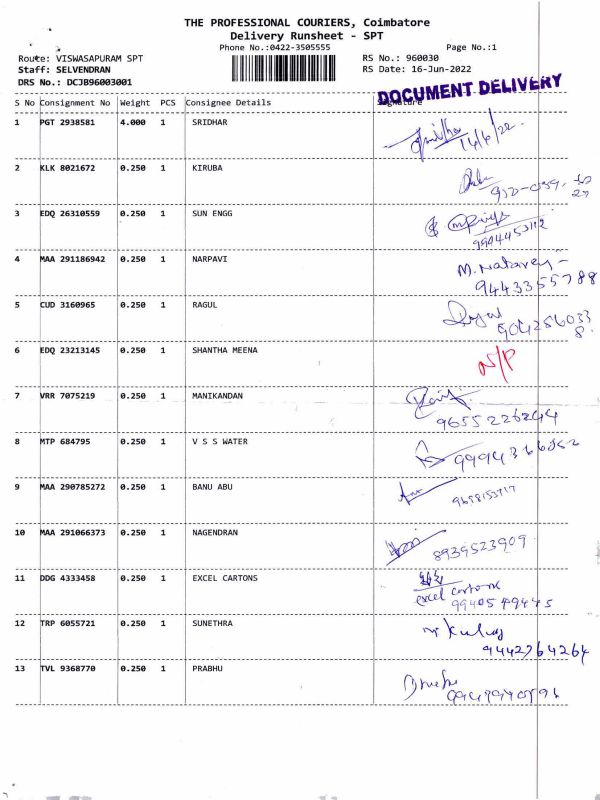 THE PROFESSIONAL COURIERS, Coimbatore
Delivery Runsheet - SPT
Phone No.:0422-3505555 Page No.:1
Route: VISWASAPURAM SPT RS No.: 960030
Staff: SELVENDRAN RS Date: 16-Jun-2022
DRS No.: DCJB96003001
DOCUMENT DELIVERY
S No Consignment No Weight PCS Consignee Details Signature
1 PGT 2938581 4.000 1 SRIDHAR
16/6/22
2 KLK 8021672 0.250 1 KIRUBA
3 EDQ 26310559 0.250 1 SUN ENGG
9994453112
4 MAA 291186942 0.250 1 NARPAVI
9443355788
5 CUD 3160965 0.250 1 RAGUL
6 EDQ 23213145 0.250 1 SHANTHA MEENA N/P
7 VRR 7075219 0.250 1 MANIKANDAN
9655226244
8 MTP 684795 0.250 1 V S S WATER
9 MAA 290785272 0.250 1 BANU ABU
10 MAA 291066373 0.250 1 NAGENDRAN 8939523909
11 DDG 4333458 0.250 1 EXCEL CARTONS
excel cartons
9940599445
12 TRP 6055721 0.250 1 SUNETHRA
9442764264
13 TVL 9368770 0.250 1 PRABHU